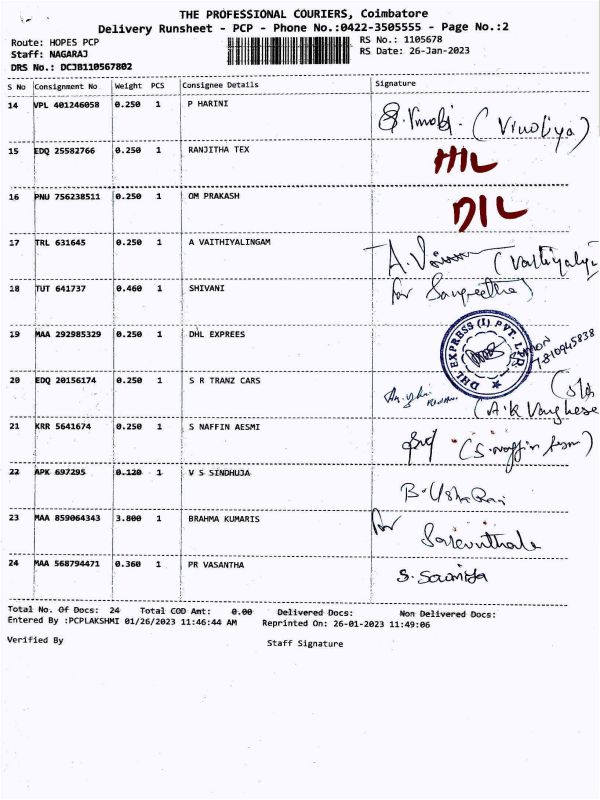 THE PROFESSIONAL COURIERS, Coimbatore
Delivery Runsheet - PCP - Phone No.:0422-3505555 - Page No.:2
Route: HOPES PCP RS No.: 1105678
Staff: NAGARAJ RS Date: 26-Jan-2023
DRS No.: DCJB110567802
S No Consignment No Weight PCS Consignee Details Signature
14 VPL 401246058 0.250 1 P HARINI
(Vinoliya)
15 EDQ 25582766 0.250 1 RANJITHA TEX
16 PNU 756238511 0.250 1 OM PRAKASH
DIL
17 TRL 631645 0.250 1 A VAITHIYALINGAM
18 TUT 641737 0.460 1 SHIVANI
for Sangeetha
19 MAA 292985329 0.250 1 DHL EXPREES
DHL EXPRESS (I) PVT. LTD.
20 EDQ 20156174 0.250 1 S R TRANZ CARS
(A.K Varghese
21 KRR 5641674 0.250 1 S NAFFIN AESMI
22 APK 697295 0.120 1 V S SINDHUJA
B. Usha Rani
23 MAA 859064343 3.800 1 BRAHMA KUMARIS
for
24 MAA 568794471 0.360 1 PR VASANTHA
Total No. Of Docs: 24 Total COD Amt: 0.00 Delivered Docs: Non Delivered Docs:
Entered By :PCPLAKSHMI 01/26/2023 11:46:44 AM Reprinted On: 26-01-2023 11:49:06
Verified By Staff Signature